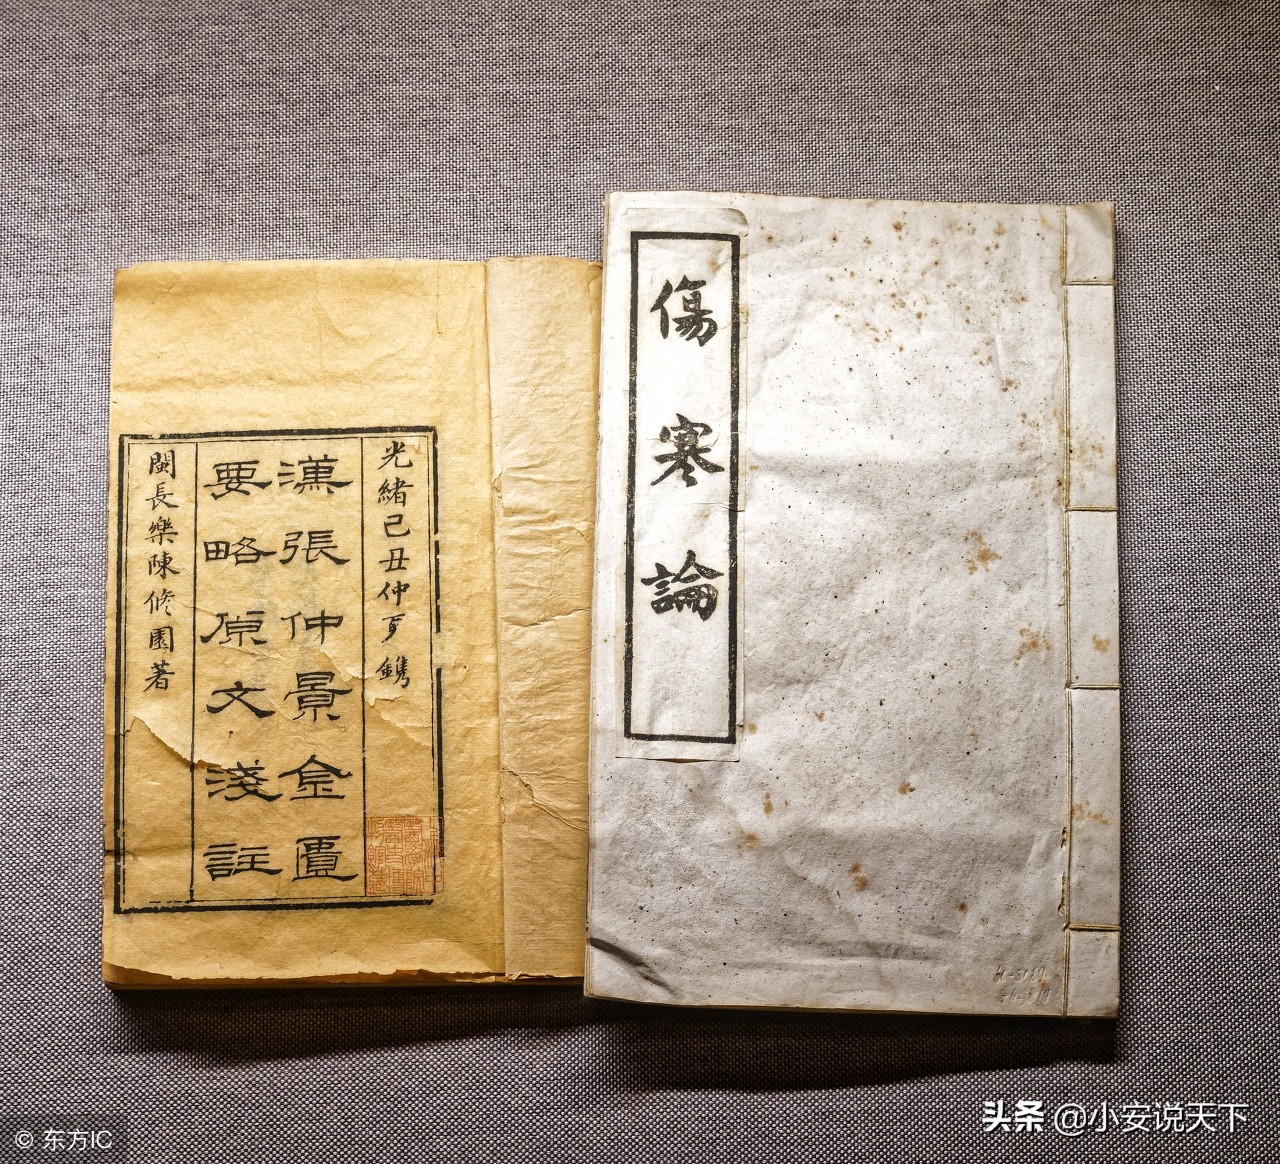 光緒己丑仲夏鐫
漢張仲景金匱
要略原文淺註
閩長樂陳修園著
傷寒論
頭条 @小安说天下
© 东方IC